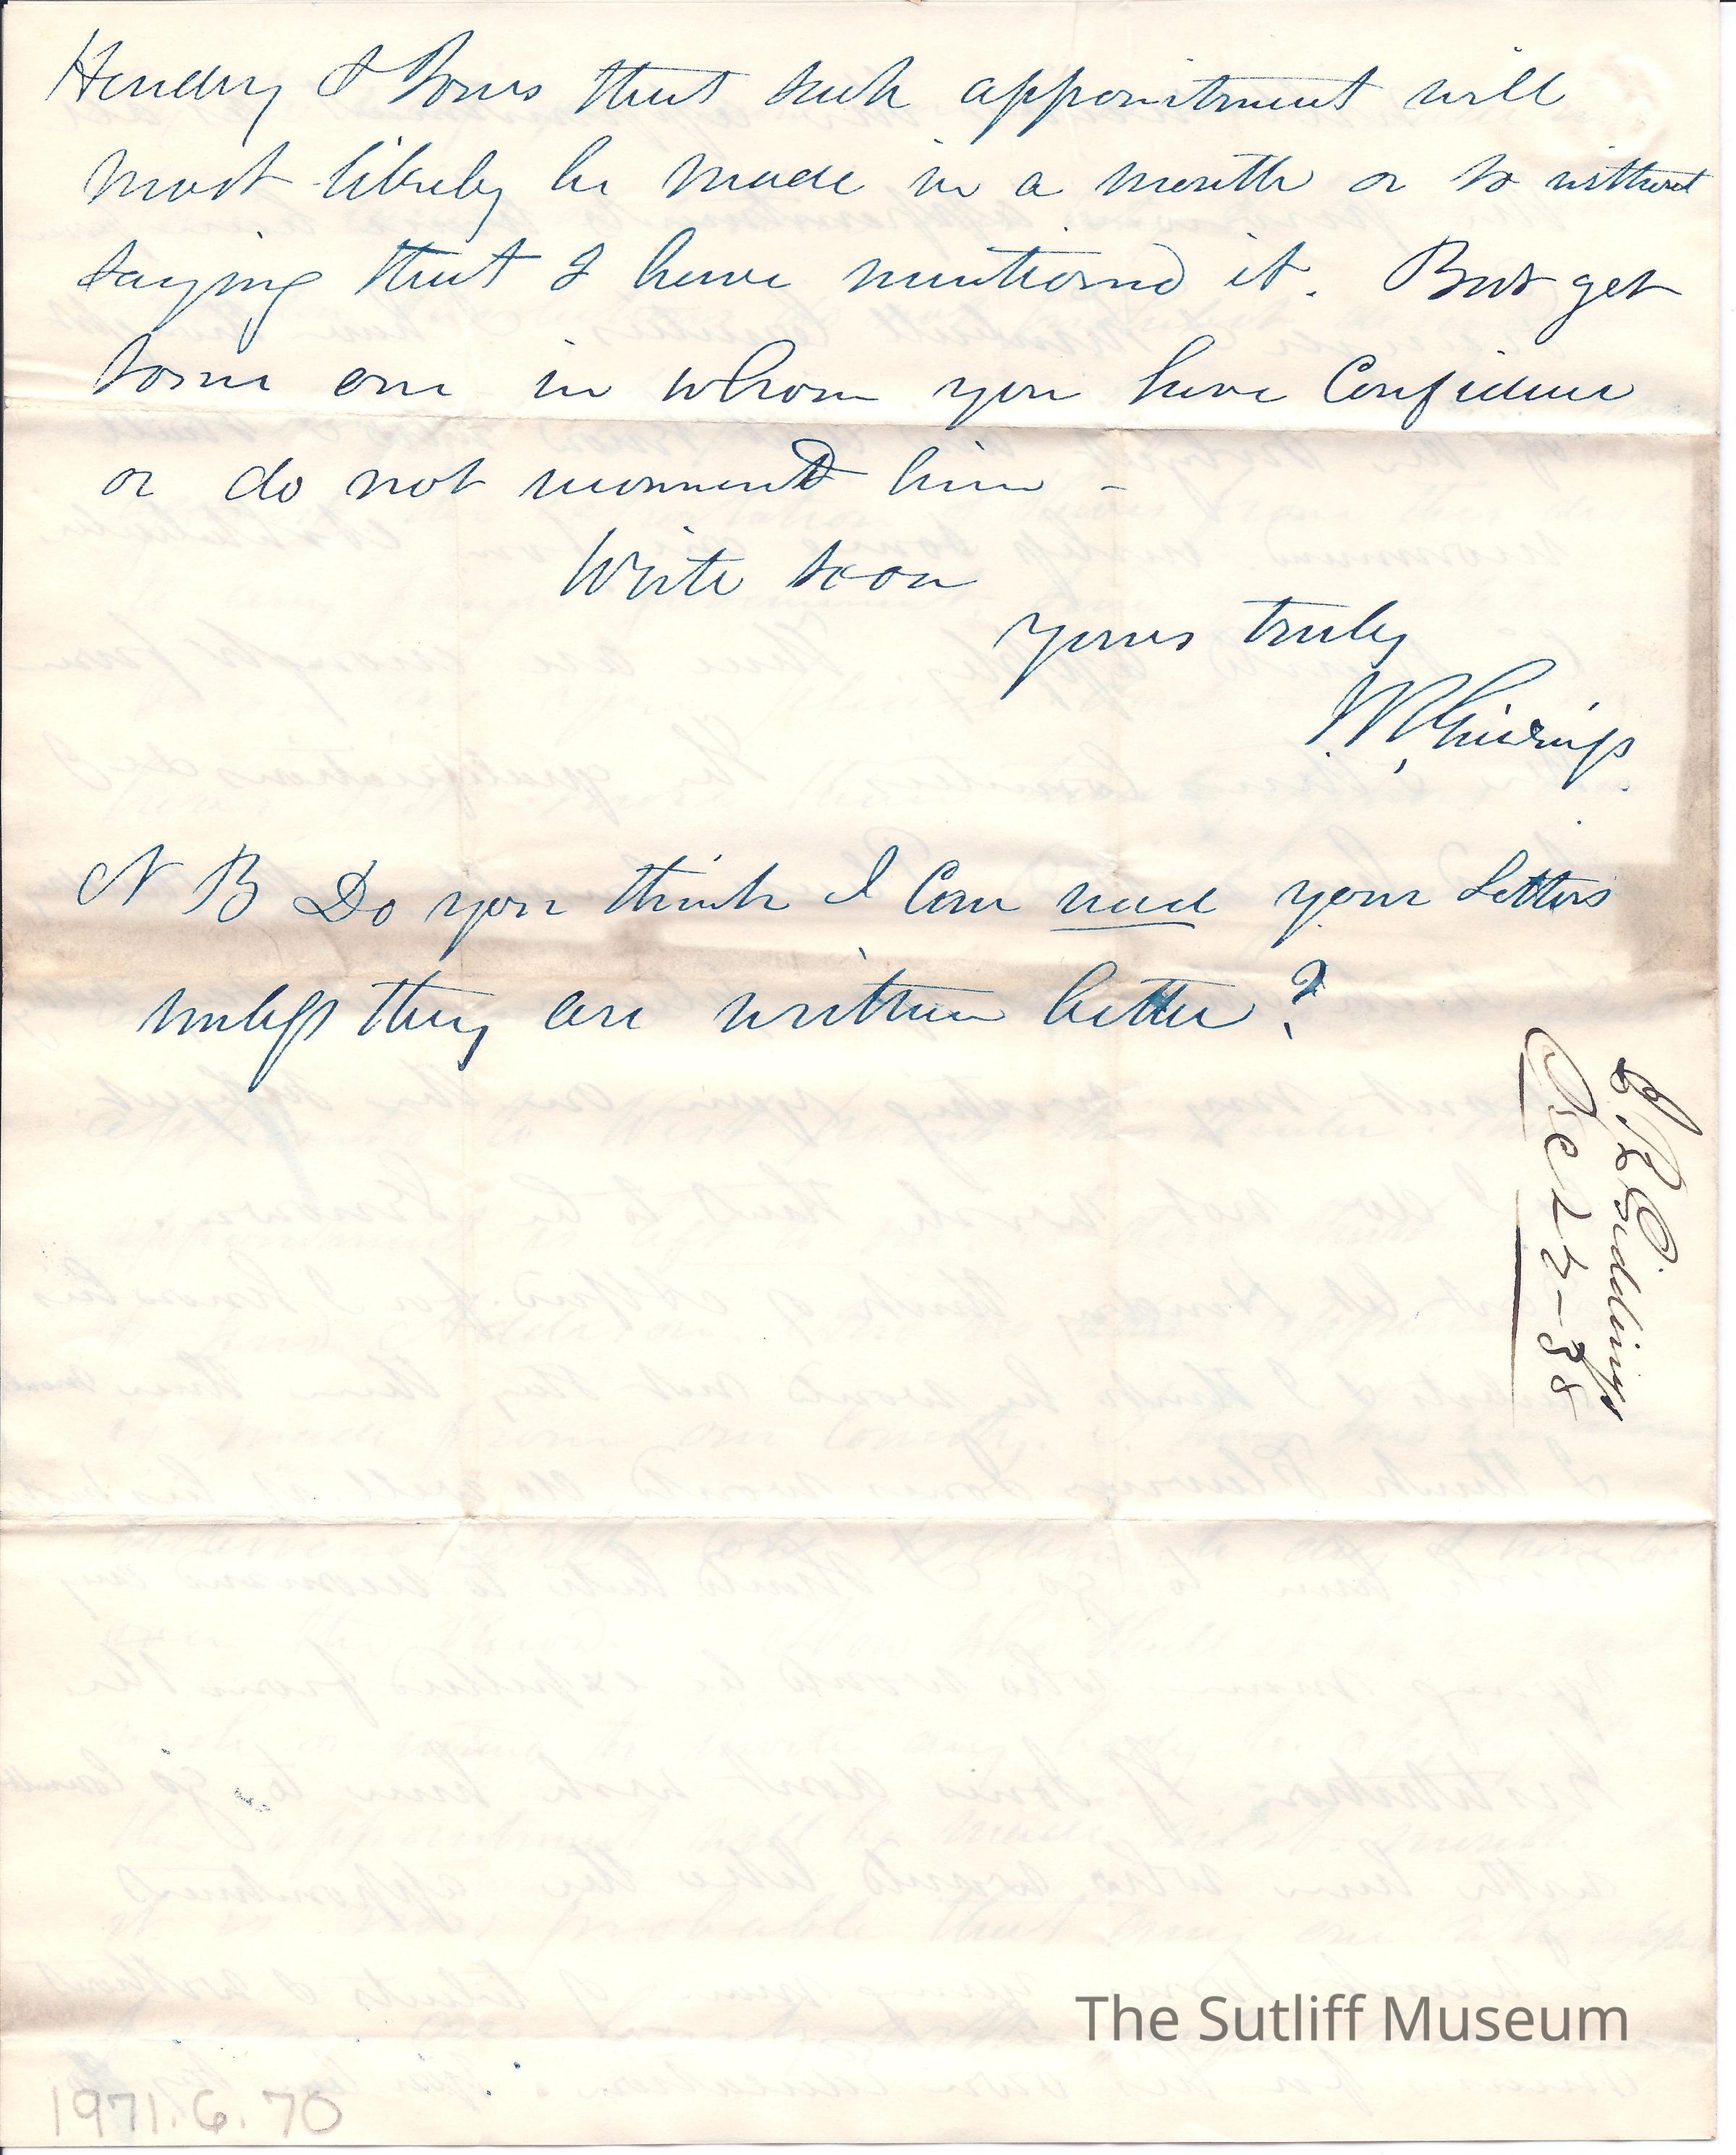 Hendry & Jones that such appointment will
most likely be made in a month or so without
saying that I have mentioned it. But get
some one in whom you have Confidence
or do not recommend him -
Write soon
yours truly
J R Giddings
N B Do you think I Can read your Letters
unless they are written better?
J R Giddings
Dec 27-38
The Sutliff Museum
1971.6.70